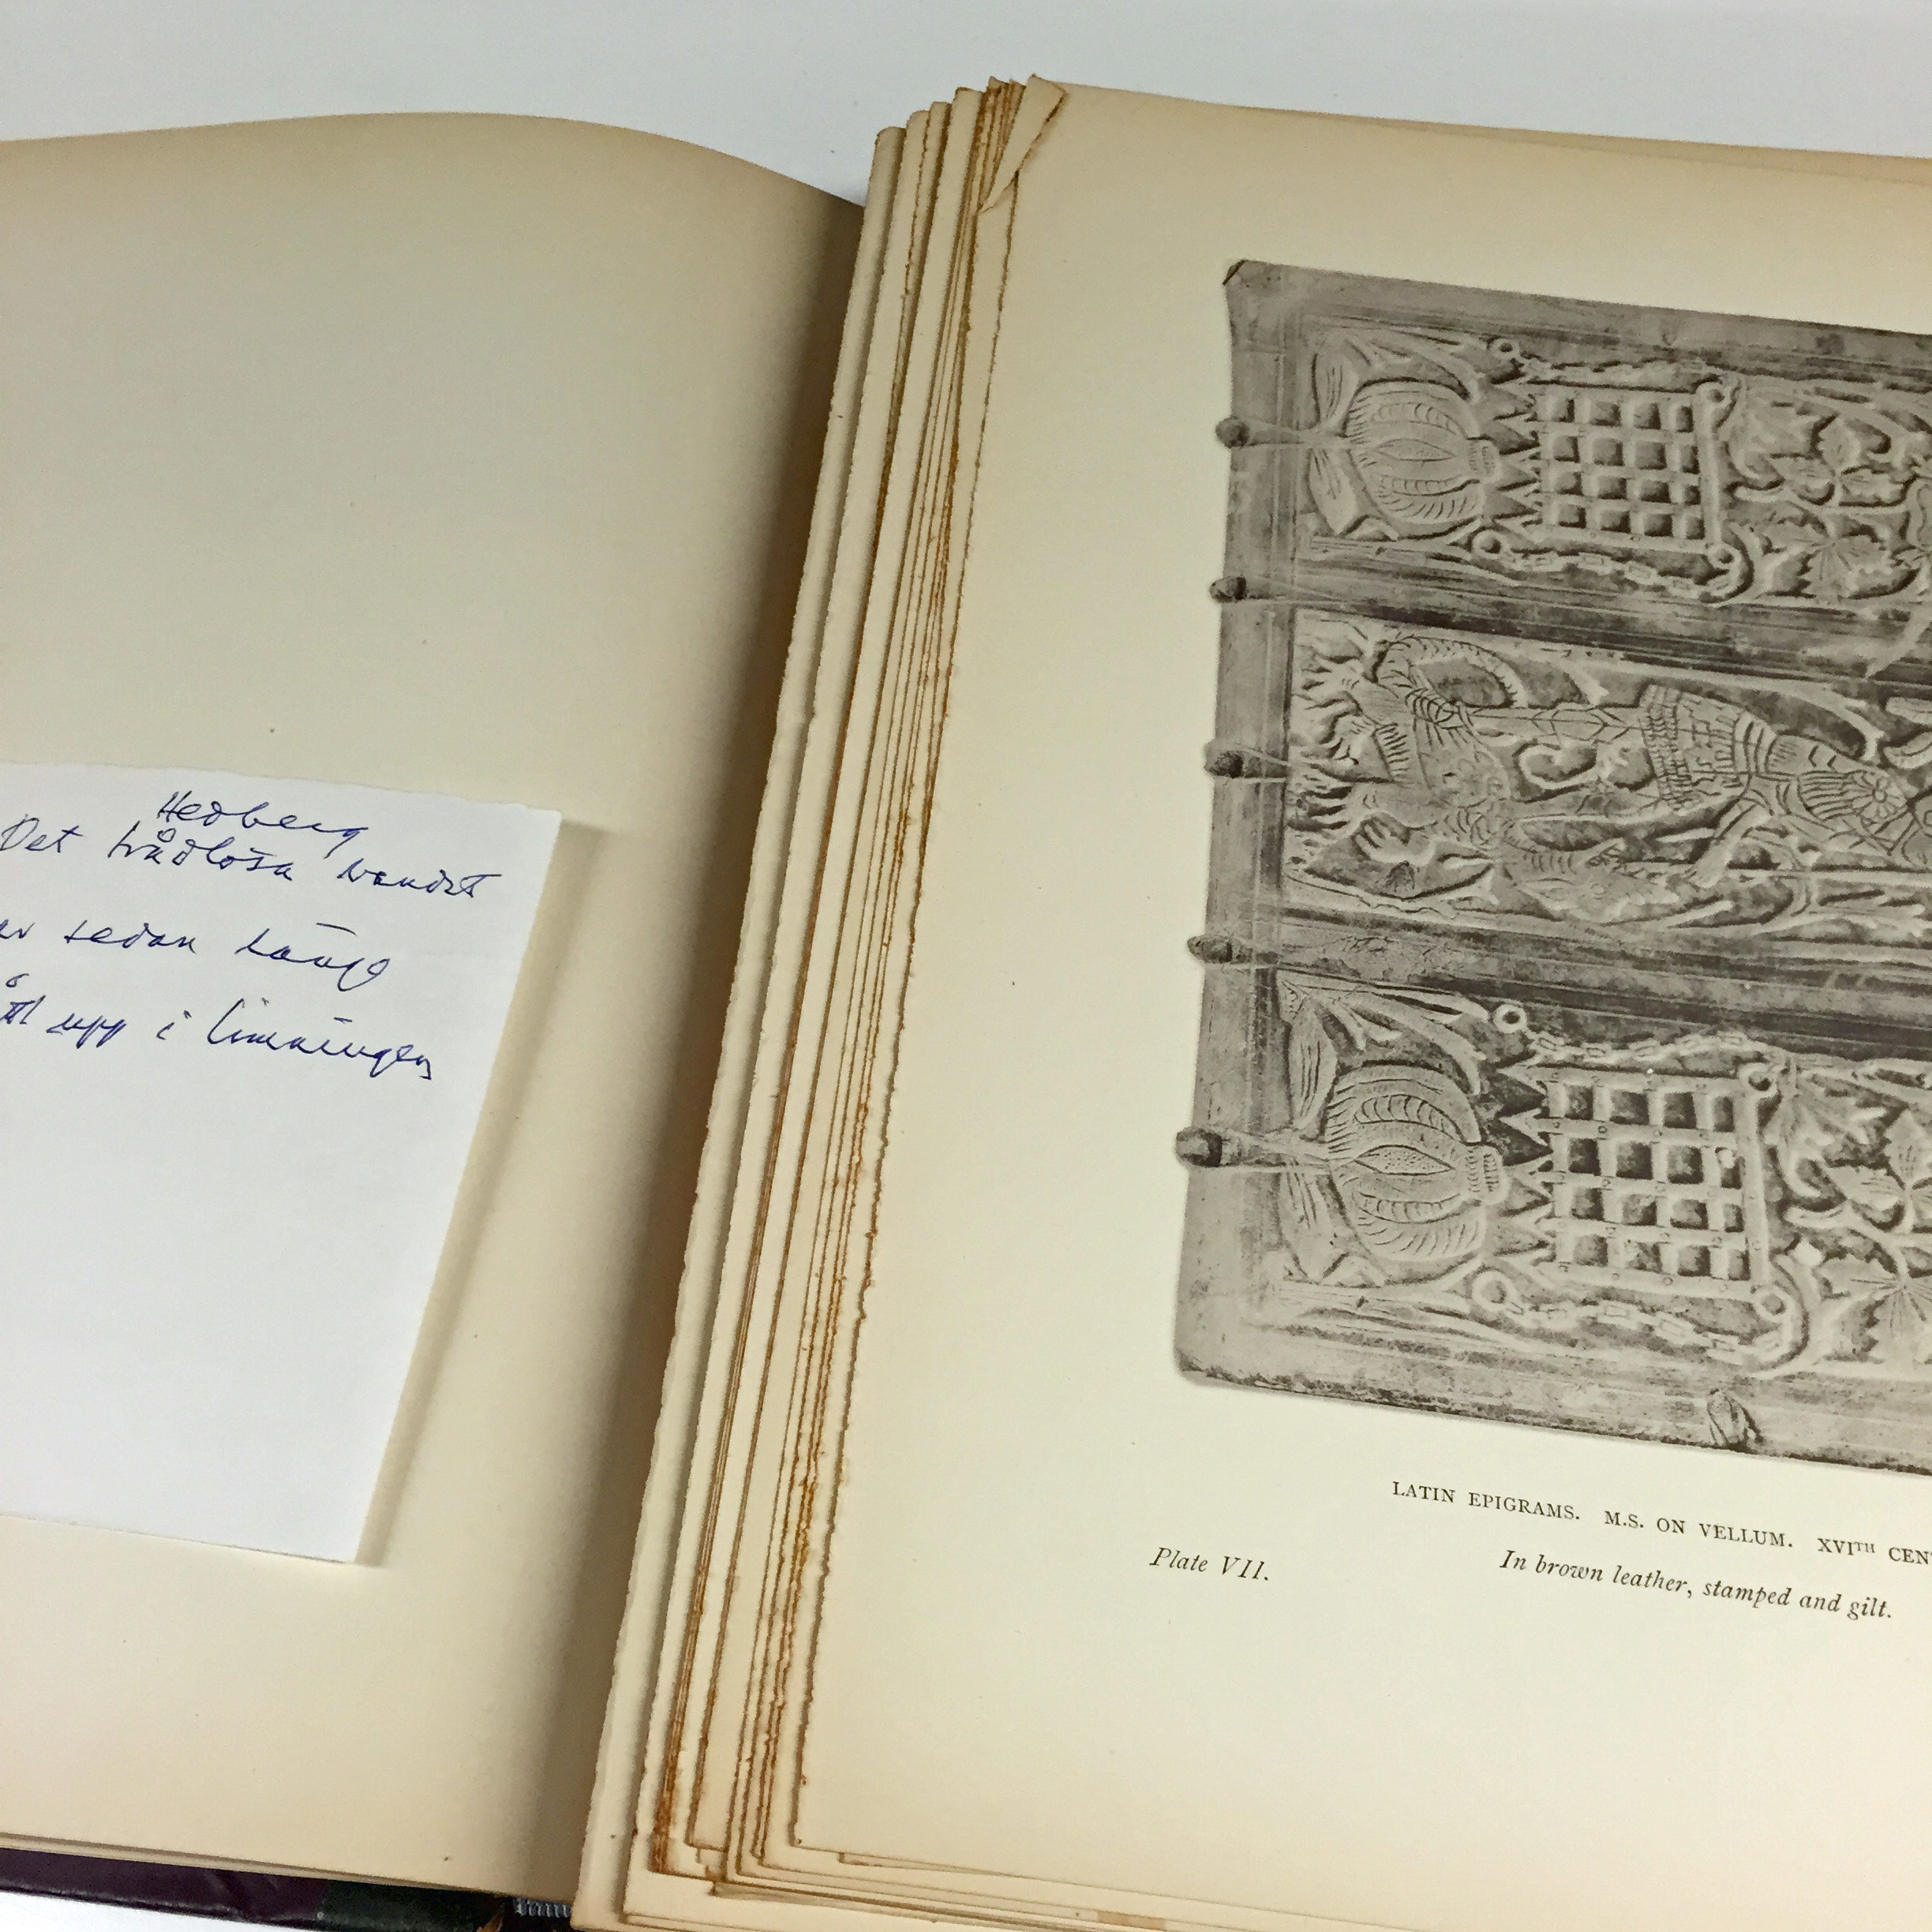 Hedberg
Det trådlösa bandet
sedan länge
upp i limningen
LATIN EPIGRAMS. M.S. ON VELLUM. XVITH CEN
Plate VII.
In brown leather, stamped and gilt.